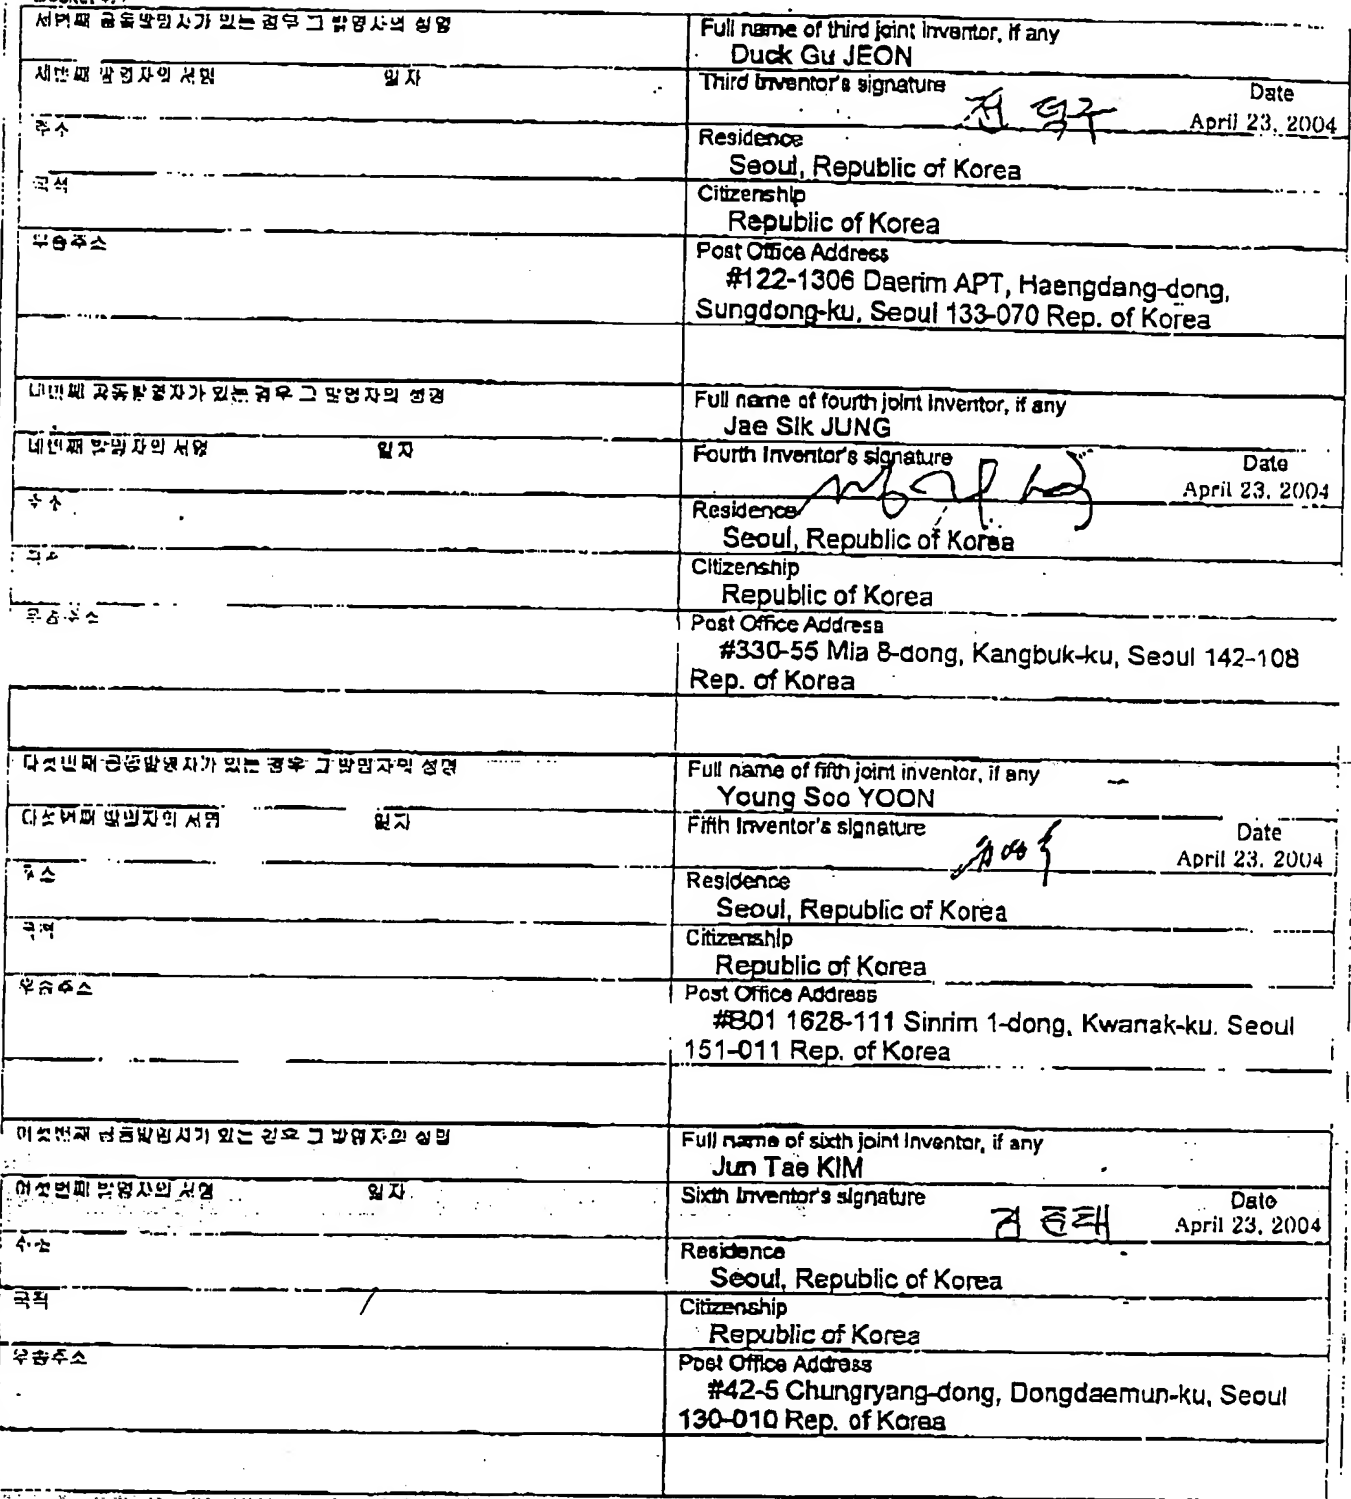 세번째 공동발명자가 있는 경우 그 발명자의 성명
Full name of third joint inventor, if any
Duck Gu JEON
세번째 발명자의 서명 일자
Third Inventor's signature Date
전 덕구 April 23, 2004
주소
Residence
Seoul, Republic of Korea
국적
Citizenship
Republic of Korea
우송주소
Post Office Address
#122-1306 Daerim APT, Haengdang-dong,
Sungdong-ku, Seoul 133-070 Rep. of Korea
네번째 공동발명자가 있는 경우 그 발명자의 성명
Full name of fourth joint inventor, if any
Jae Sik JUNG
네번째 발명자의 서명 일자
Fourth Inventor's signature Date
April 23, 2004
주소
Residence
Seoul, Republic of Korea
국적
Citizenship
Republic of Korea
우송주소
Post Office Address
#330-55 Mia 8-dong, Kangbuk-ku, Seoul 142-108
Rep. of Korea
다섯번째 공동발명자가 있는 경우 그 발명자의 성명
Full name of fifth joint inventor, if any
Young Soo YOON
다섯번째 발명자의 서명 일자
Fifth Inventor's signature Date
April 23, 2004
주소
Residence
Seoul, Republic of Korea
국적
Citizenship
Republic of Korea
우송주소
Post Office Address
#B01 1628-111 Sinrim 1-dong, Kwanak-ku, Seoul
151-011 Rep. of Korea
여섯번째 공동발명자가 있는 경우 그 발명자의 성명
Full name of sixth joint inventor, if any
Jun Tae KIM
여섯번째 발명자의 서명 일자
Sixth Inventor's signature Date
김 준태 April 23, 2004
주소
Residence
Seoul, Republic of Korea
국적
Citizenship
Republic of Korea
우송주소
Post Office Address
#42-5 Chungryang-dong, Dongdaemun-ku, Seoul
130-010 Rep. of Korea